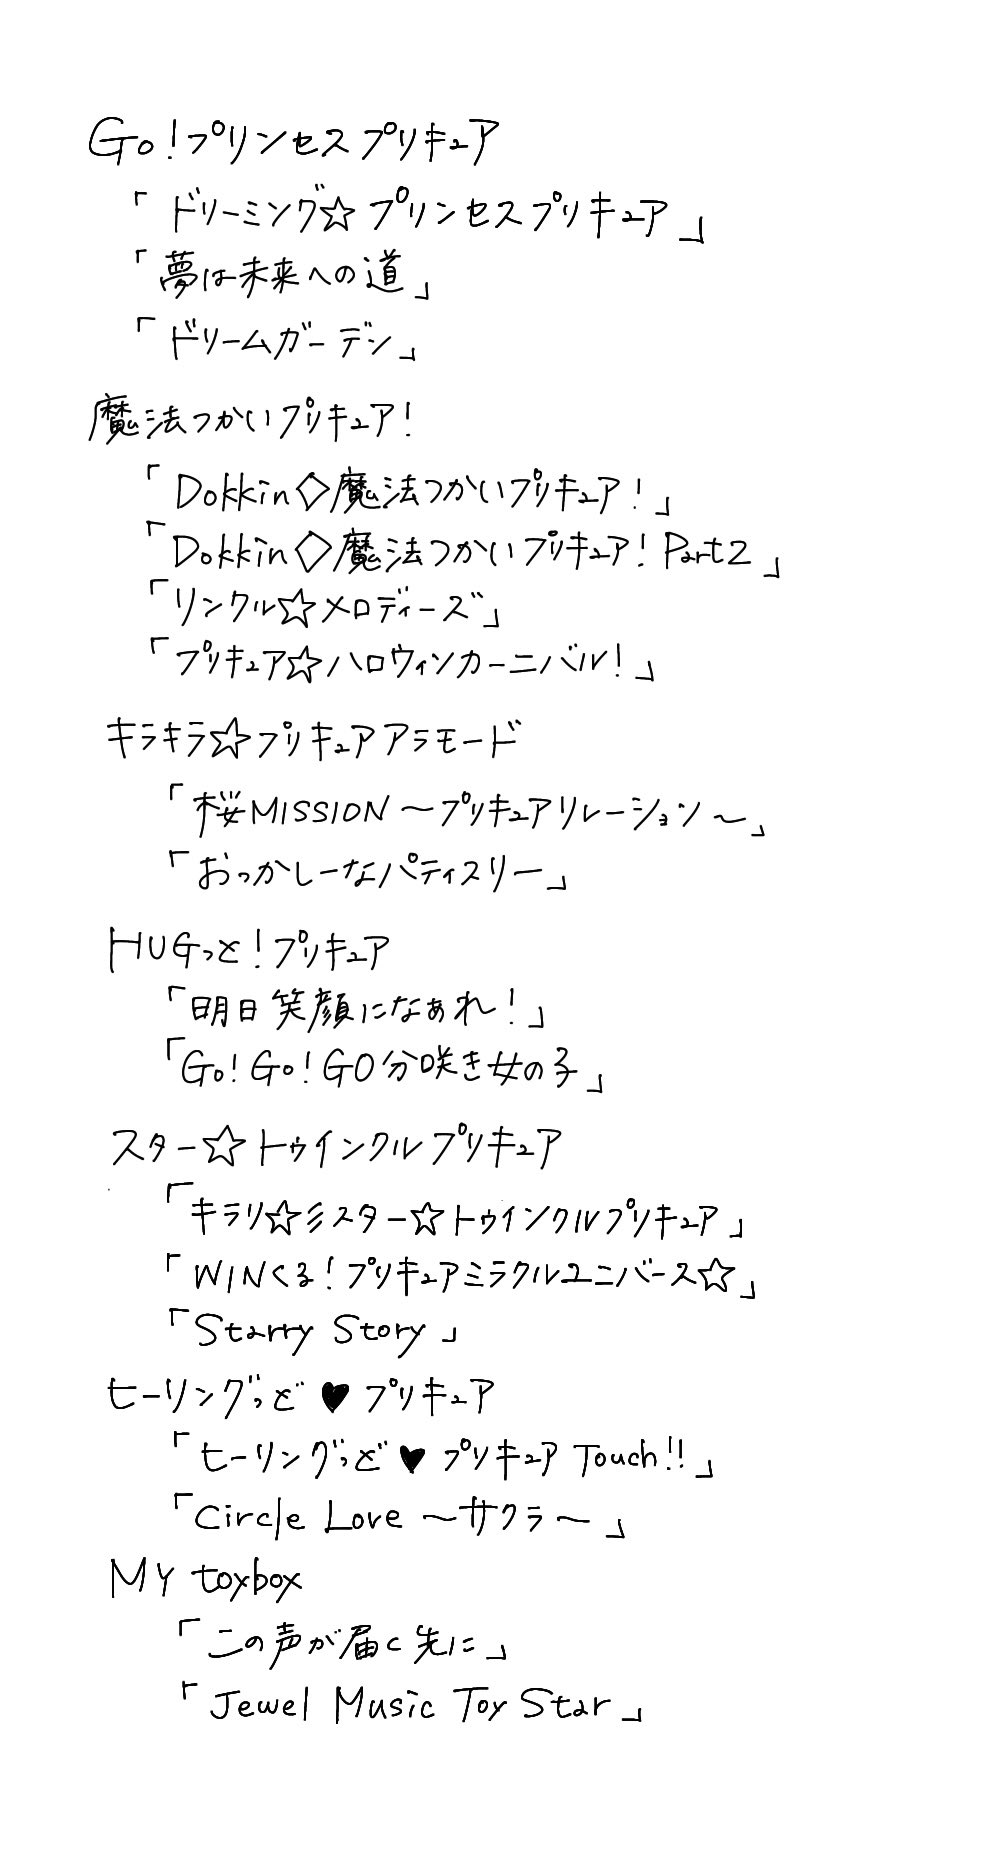 Go!プリンセスプリキュア
「ドリーミング☆プリンセスプリキュア」
「夢は未来への道」
「ドリームガーデン」
魔法つかいプリキュア!
「Dokkin◇魔法つかいプリキュア!」
「Dokkin◇魔法つかいプリキュア!Part2」
「リンクル☆メロディーズ」
「プリキュア☆ハロウィンカーニバル!」
キラキラ☆プリキュアアラモード
「桜MISSION～プリキュアリレーション～」
「おっかしーなパティスリー」
HUGっと!プリキュア
「明日笑顔になぁれ!」
「Go!Go!GO分咲き女の子」
スター☆トゥインクルプリキュア
「キラリ☆彡スター☆トゥインクルプリキュア」
「WINくる!プリキュアミラクルユニバース☆」
「Starry Story」
ヒーリングっど♥プリキュア
「ヒーリングっど♥プリキュアTouch!!」
「Circle Love～サクラ～」
MY toybox
「この声が届く先に」
「Jewel Music Toy Star」